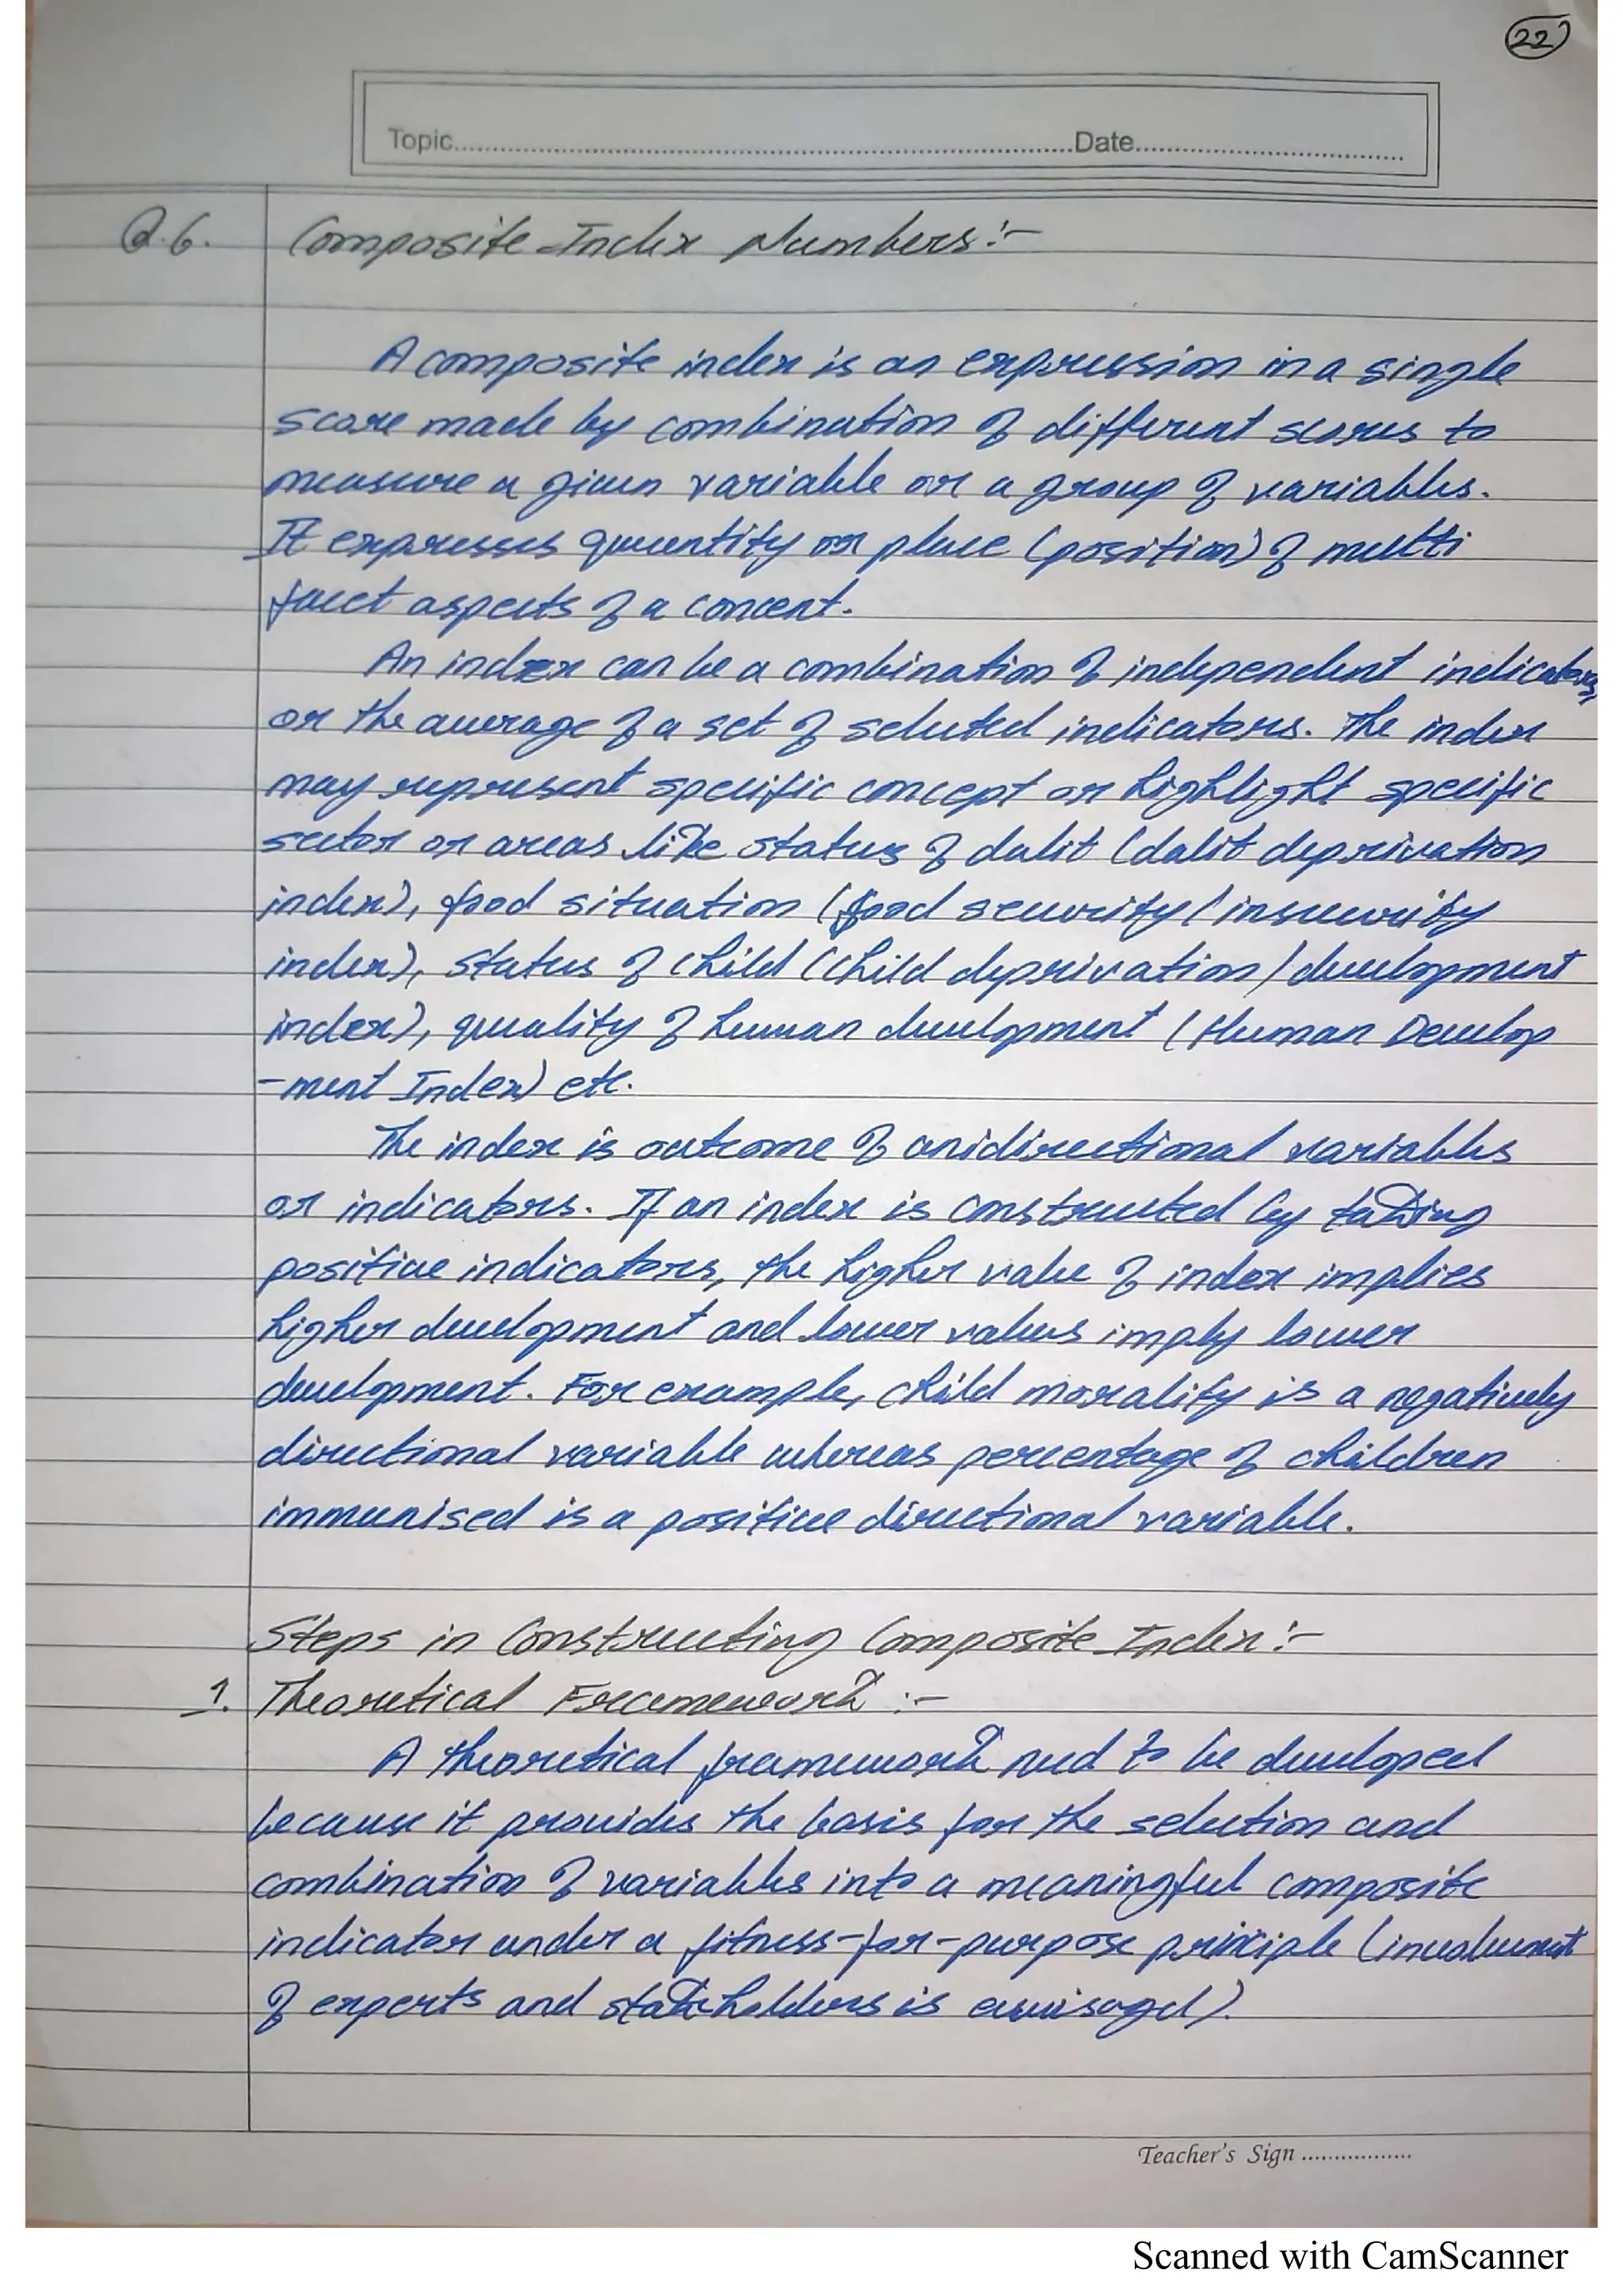 22
Topic..........Date..........
Q.6. Composite Index Numbers:-
A composite index is an expression in a single
score made by combination of different scores to
measure a given variable or a group of variables.
It expresses quantity or place (position) of multi
facet aspects of a concent.
An index can be a combination of independent indicators,
or the average of a set of selected indicators. The index
may represent specific concept or highlight specific
sector or areas like status of dalit (dalit deprivation
index), food situation (food security/insecurity
index), status of child (child deprivation/development
index), quality of human development (Human Develop
-ment Index) etc.
The index is outcome of unidirectional variables
or indicators. If an index is constructed by taking
positive indicators, the higher value of index implies
higher development and lower values imply lower
development. For example, child morality is a negatively
directional variable whereas percentage of children
immunised is a positive directional variable.
Steps in Constructing Composite Index:-
1. Theoretical Framework :-
A theoretical framework need to be developed
because it provides the basis for the selection and
combination of variables into a meaningful composite
indicator under a fitness-for-purpose principle (involvement
of experts and stakeholders is envisaged).
Teacher's Sign ..........
Scanned with CamScanner